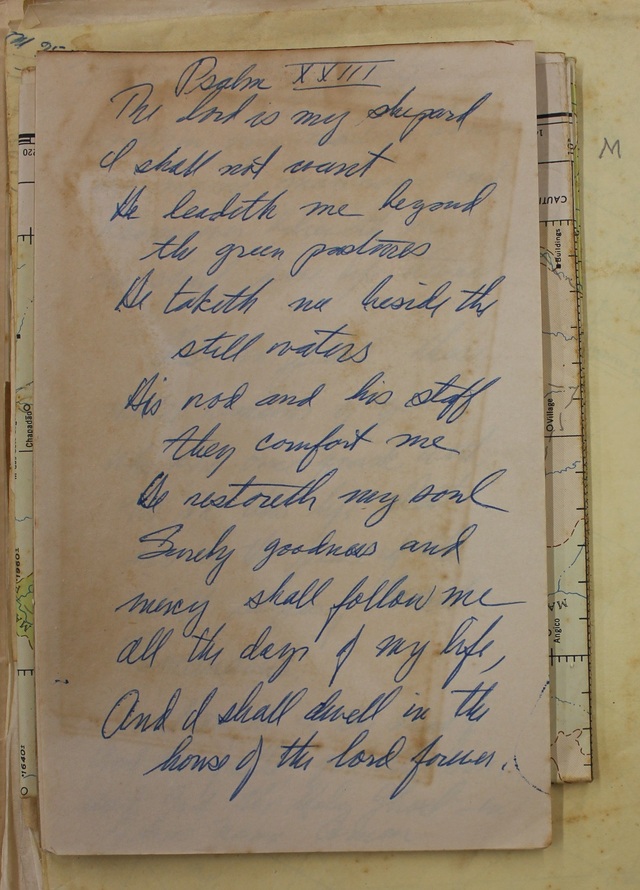 Psalm XXIII
The lord is my shepard
I shall not want
He leadeth me beyond
the green pastures
He taketh me beside the
still waters
His rod and his staff
they comfort me
He restoreth my soul
Surely goodness and
mercy shall follow me
all the days of my life,
And I shall dwell in the
house of the lord forever.
M
CAUT
Buildings
Village
Chapadão
Angico